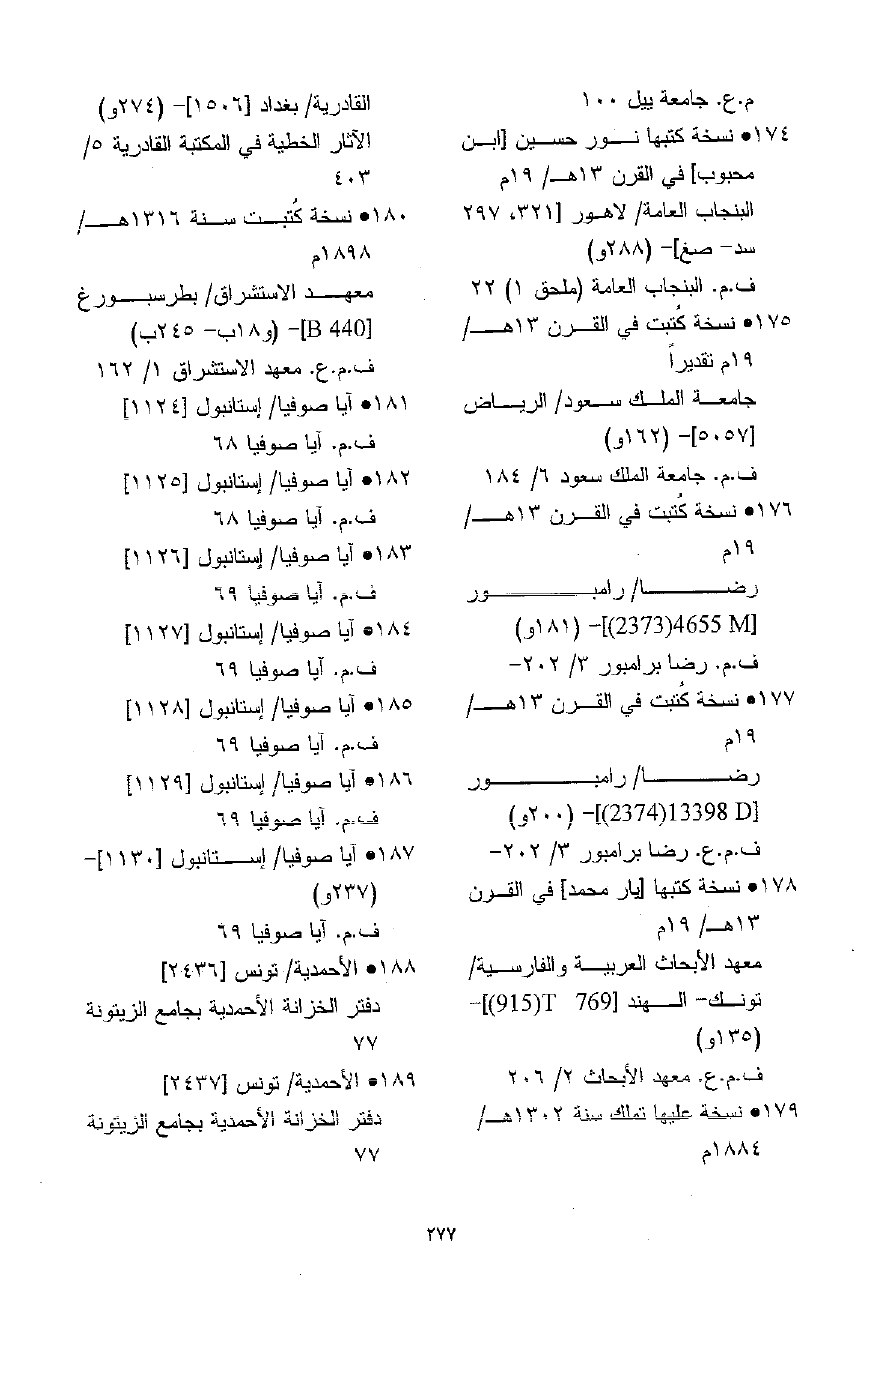 م.ع. جامعة ييل ١٠٠
١٧٤• نسخة كتبها نور حسين [ابن
محبوب] في القرن ١٣هـ/ ١٩م
البنجاب العامة/ لاهور [٣٢١، ٢٩٧
سد- صغ]- (٢٨٨و)
ف.م. البنجاب العامة (ملحق ١) ٢٢
١٧٥• نسخة كُتبت في القرن ١٣هـ/
١٩م تقديراً
جامعة الملك سعود/ الرياض
[٥٠٥٧]- (١٦٢و)
ف.م. جامعة الملك سعود ٦/ ١٨٤
١٧٦• نسخة كُتبت في القرن ١٣هـ/
١٩م
رضا/ رامبور
[2373)4655 M)]- (١٨١و)
ف.م. رضا برامبور ٣/ ٢٠٢-
١٧٧• نسخة كُتبت في القرن ١٣هـ/
١٩م
رضا/ رامبور
[2374)13398 D)]- (٢٠٠و)
ف.م.ع. رضا برامبور ٣/ ٢٠٢-
١٧٨• نسخة كتبها [يار محمد] في القرن
١٣هـ/ ١٩م
معهد الأبحاث العربية والفارسية/
تونك- الهند [915)T 769)]-
(١٣٥و)
ف.م.ع. معهد الأبحاث ٢/ ٢٠٦
١٧٩• نسخة عليها تملك سنة ١٣٠٢هـ/
١٨٨٤م
القادرية/ بغداد [١٥٠٦]- (٢٧٤و)
الآثار الخطية في المكتبة القادرية ٥/
٤٠٣
١٨٠• نسخة كُتبت سنة ١٣١٦هـ/
١٨٩٨م
معهد الاستشراق/ بطرسبورغ
[B 440]- (و١٨ب- ٢٤٥ب)
ف.م.ع. معهد الاستشراق ١/ ١٦٢
١٨١• آيا صوفيا/ إستانبول [١١٢٤]
ف.م. آيا صوفيا ٦٨
١٨٢• آيا صوفيا/ إستانبول [١١٢٥]
ف.م. آيا صوفيا ٦٨
١٨٣• آيا صوفيا/ إستانبول [١١٢٦]
ف.م. آيا صوفيا ٦٩
١٨٤• آيا صوفيا/ إستانبول [١١٢٧]
ف.م. آيا صوفيا ٦٩
١٨٥• آيا صوفيا/ إستانبول [١١٢٨]
ف.م. آيا صوفيا ٦٩
١٨٦• آيا صوفيا/ إستانبول [١١٢٩]
ف.م. آيا صوفيا ٦٩
١٨٧• آيا صوفيا/ إستانبول [١١٣٠]-
(٢٣٧و)
ف.م. آيا صوفيا ٦٩
١٨٨• الأحمدية/ تونس [٢٤٣٦]
دفتر الخزانة الأحمدية بجامع الزيتونة
٧٧
١٨٩• الأحمدية/ تونس [٢٤٣٧]
دفتر الخزانة الأحمدية بجامع الزيتونة
٧٧
٢٧٧